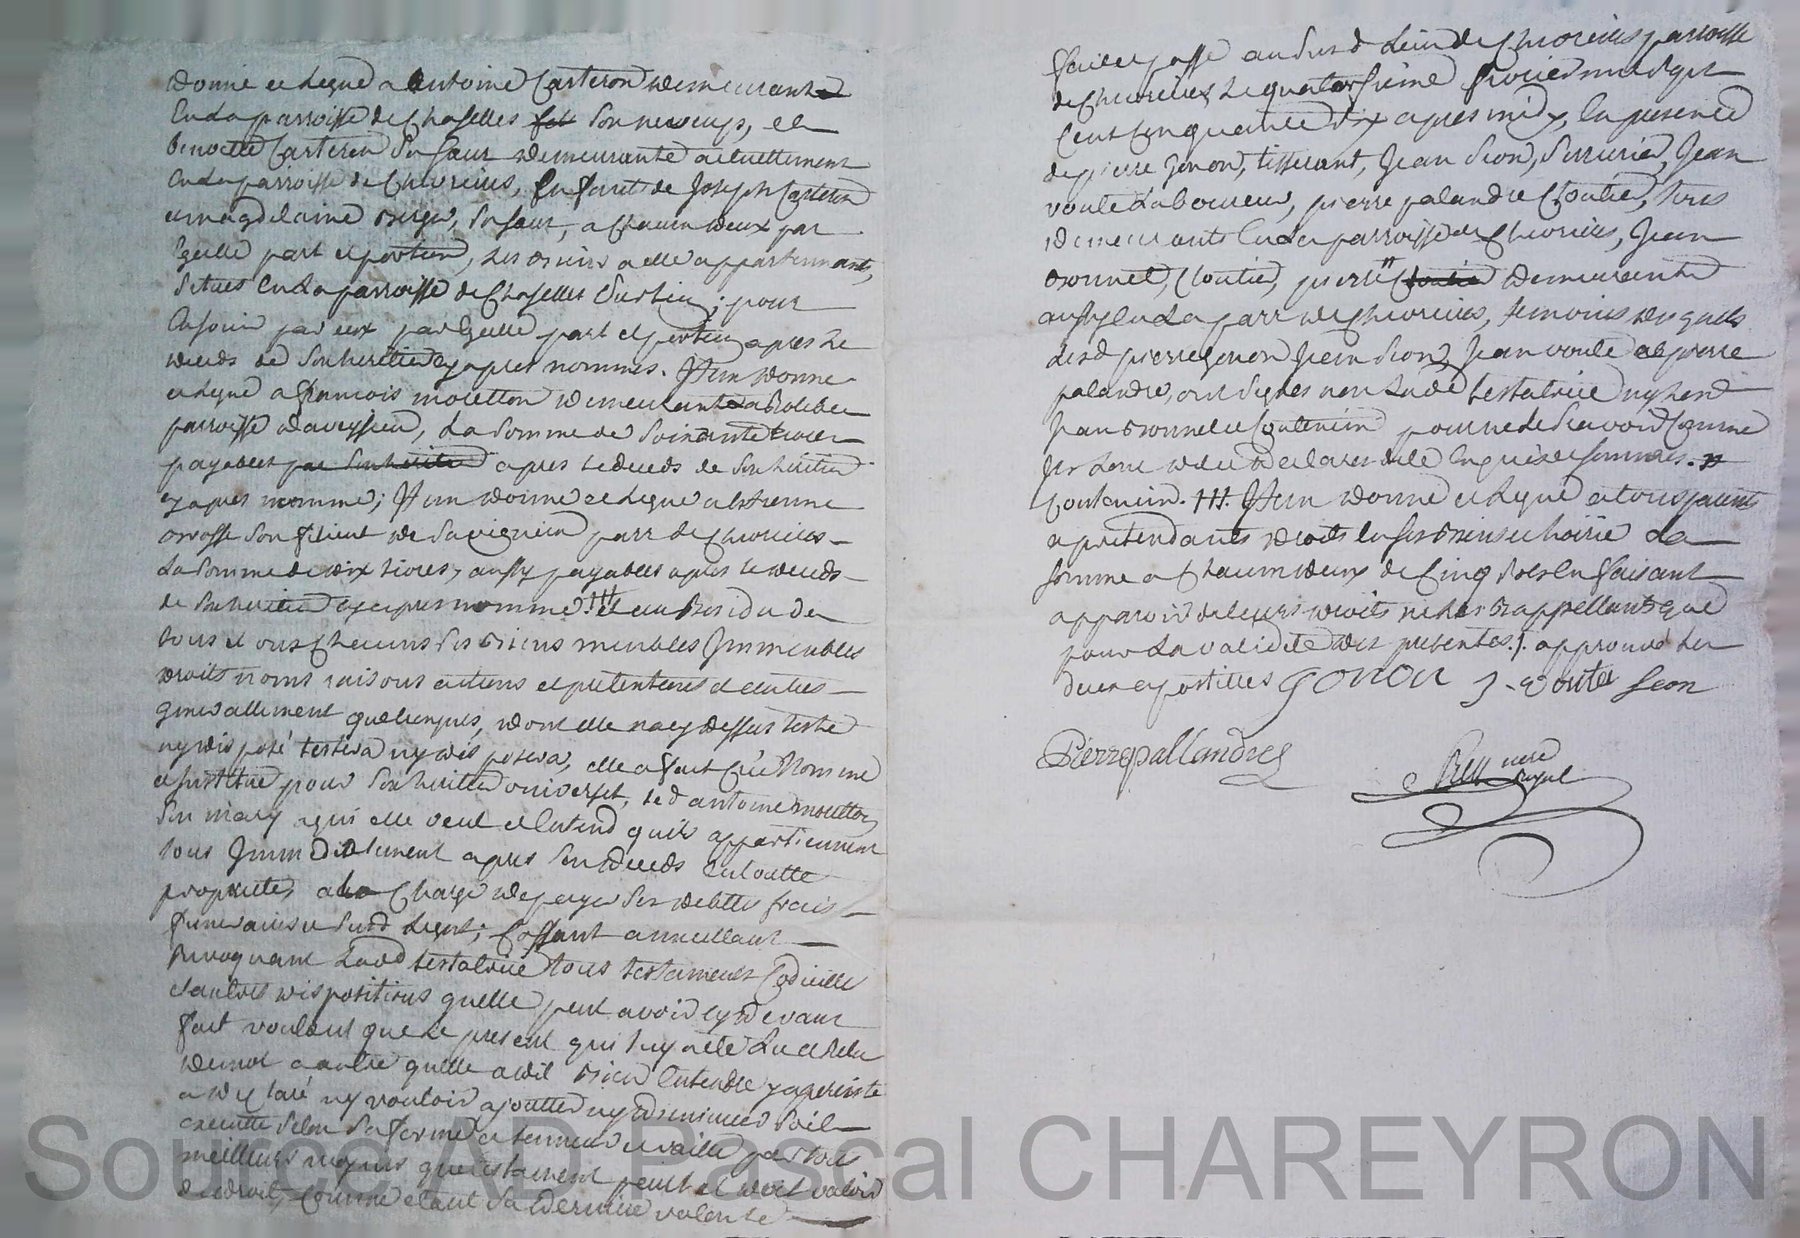 donne et legue a Antoine Carteron demeurant
en la parroisse de Chaselles son neveup, et a
benoitte Carteron sa sœur demeurante actuellement
en la parroisse de Chevrieres, enfants de Joseph Carteron
et magdelaine sa sœur, a chacun deux par
Egalle part et portion, les biens a elle appartennants,
situes en la parroisse de Chaselles pour
en jouir par eux par Egalle part et portion apres le
deceds de son heritier cy apres nommes. Item donne
et legue a francois moretton demeurant a
parroisse daveysieu, la somme de soixante livres
payables par son heritier apres le deceds de son heritier
cy apres nomme; Item donne et legue a Estienne
son filieut de parr de Chevrieres
la somme de dix livres, aussy payables apres le deceds
de son heritier cy apres nomme ††† Et au Residu de
tous et uns Chacuns ses biens meubles Immeubles
droits noms raisons actions et pretentions et autres
generallement quelconques, dont elle na cy dessus testé
ny dis posé testera ny dis posera, elle a fait créé Nommé
et institué pour son heritier universel, led antoine moretton
son mary a qui elle veut et Entend quils appartiennent
tous Immediatement apres son deceds en toutte
proprietes, a la Charge de payer ses debttes frais
funeraires et susd legats; Cassant annullant
Revoquant Lad testatrice tous testaments Codicille
et autres dispositions quelle peut avoir cy devant
fait voulant que le present qui luy a été Lu et Relu
de mot a autre quelle a dit bien Entendre y a persisté
a declaré ny vouloir ajoutter ny diminuer soit
executte selon sa forme et teneur et vaille par tous
meilleurs moyens que testament peut et doit valoir
de droit, Comme etant sa derniere volonte
fait et passé au susd Lieu de Chevrieres parroisse
de Chevrieres, le quatorsieme mil sept
Cent Cinquante dix apres midy, En presence
de pierre Gonon, tisserant, Jean Seon, serrurier, Jean
voute Laboureur, pierre palandre Cloutier, tous
demeurants En la parroisse de Chevrieres, Jean
bonnet, Cloutier, pierre Cloutier demeurants
aussy en La parr de Chevrieres, temoins desquels
lesd pierre gonon Jean Seon, Jean voute et pierre
palandre, ont signes non Lade testatrice ny lesd
Jean bonnet et Coutencin pour ne le scavoir Comme
Ils l'ont de ce declares dele Enquis et sommes.
Coutencin. †††. Item donne et legue a tous parents
et pretendants droits en ses biens et hoirie La
somme a Chacun deux de Cinq sols En faisant
apparoir de leurs droits ne les Rappellants que
pour La validité des presentes ./. approuve les
deux apostilles GONON J. voute seon
Pierre pallandre